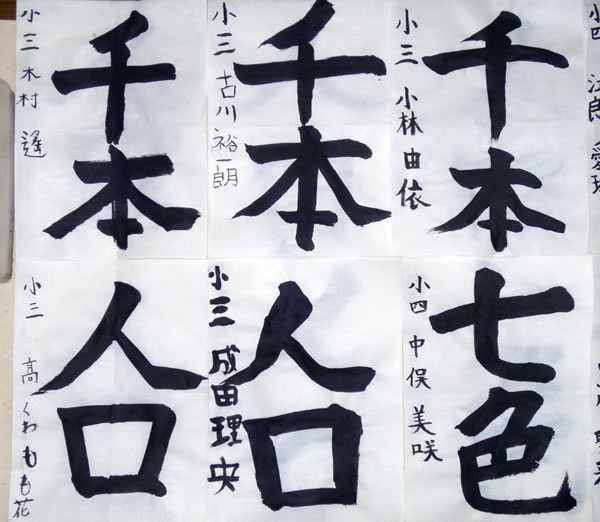 千本
小三 木村 遥
千本
小三 古川 裕一朗
千本
小三 小林 由依
小四
人口
小三 高くわもも花
人口
小三 成田理央
七色
小四 中俣 美咲